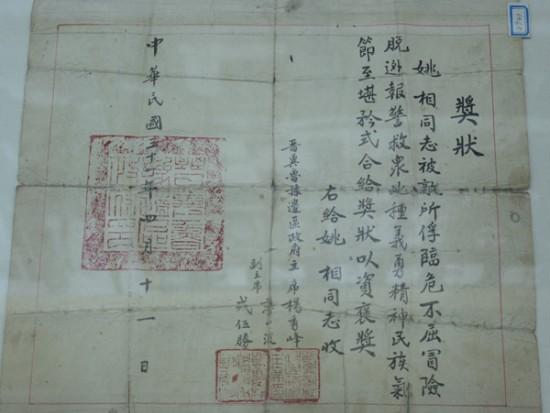 獎狀
姚 相同志被敵所俘臨危不屈冒險
脫逃報警救眾此種義勇精神民族氣
節至堪矜式合給獎狀以資褒獎
右給姚 相同志收
晉冀魯豫邊區政府主席楊秀峰
副主席 薄一波
戎伍勝
中華民國三十一年四月十一日